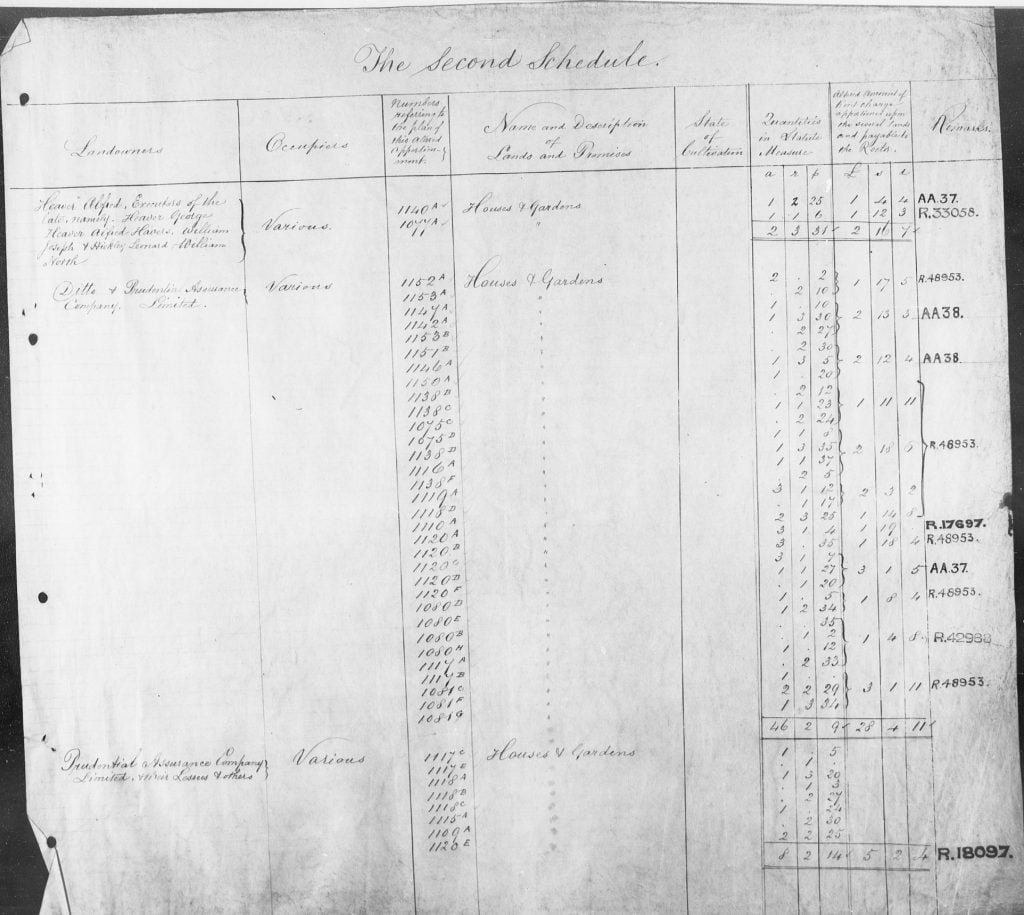 The Second Schedule.
Landowners
Occupiers
Numbers referring to the plan of this altered apportionment.
Name and Description of Lands and Premises
State of Cultivation
Quantities in Statute Measure
Altered Amount of Rent Charge apportioned upon the several Lands and payable to the Rector.
Remarks.
a r p £ s d
Heaver Alfred, Executors of the
late, namely, Heaver George
Heaver Alfred Havers, William
Joseph & Hickley Leonard William
North
Various.
1140 A Houses & Gardens 1 2 25 1 4 4 AA.37.
1077 A " 1 1 6 1 12 3 R.33058.
11 2 3 31 2 16 7
Ditto & Prudential Assurance
Company Limited.
Various
1152 A Houses & Gardens 2 . 2
1153 A . 2 10 1 17 5 R.48953.
1147 A 1 . 10
1142 A 1 3 30 2 13 3 AA38.
1153 B . 2 27
1151 B . 2 30
1146 A 1 3 5 2 12 4 AA38.
1150 A 1 . 29
1138 B . 2 12
1138 C 1 1 23 1 11 11
1075 C . 2 24
1075 D 1 1 8
1138 D 1 3 35 2 18 6 R.48953.
1116 A 1 1 37
1138 F . 2 5
1119 A 3 1 12 2 3 2
1118 D . 1 17
1110 A 2 3 25 1 14 8
1120 A 3 1 4 1 19 . R.17697.
1120 B 3 . 35 1 18 4 R.48953.
1120 C 3 1 7
1120 D 1 1 27 3 1 5 AA.37.
1120 F . 1 20
1080 D 1 . 5 1 8 4 R.48953.
1080 E 1 2 34
1080 B . . 35
1080 H . 1 2 1 4 8 R.42988
1117 A 1 . 12
1117 B . 2 33
1081 C 1 . .
1081 F 2 2 29 3 1 11 R.48953.
1081 G 1 3 34
46 2 9 28 4 11
Prudential Assurance Company
Limited, & their Lessees & others
Various
1117 C Houses & Gardens 1 . 5
1117 E . 1 .
1118 A 1 3 20
1118 B
1118 C
1115 A
1109 A . 2 30
1120 E 2 2 25
8 2 14 5 2 4 R.18097.